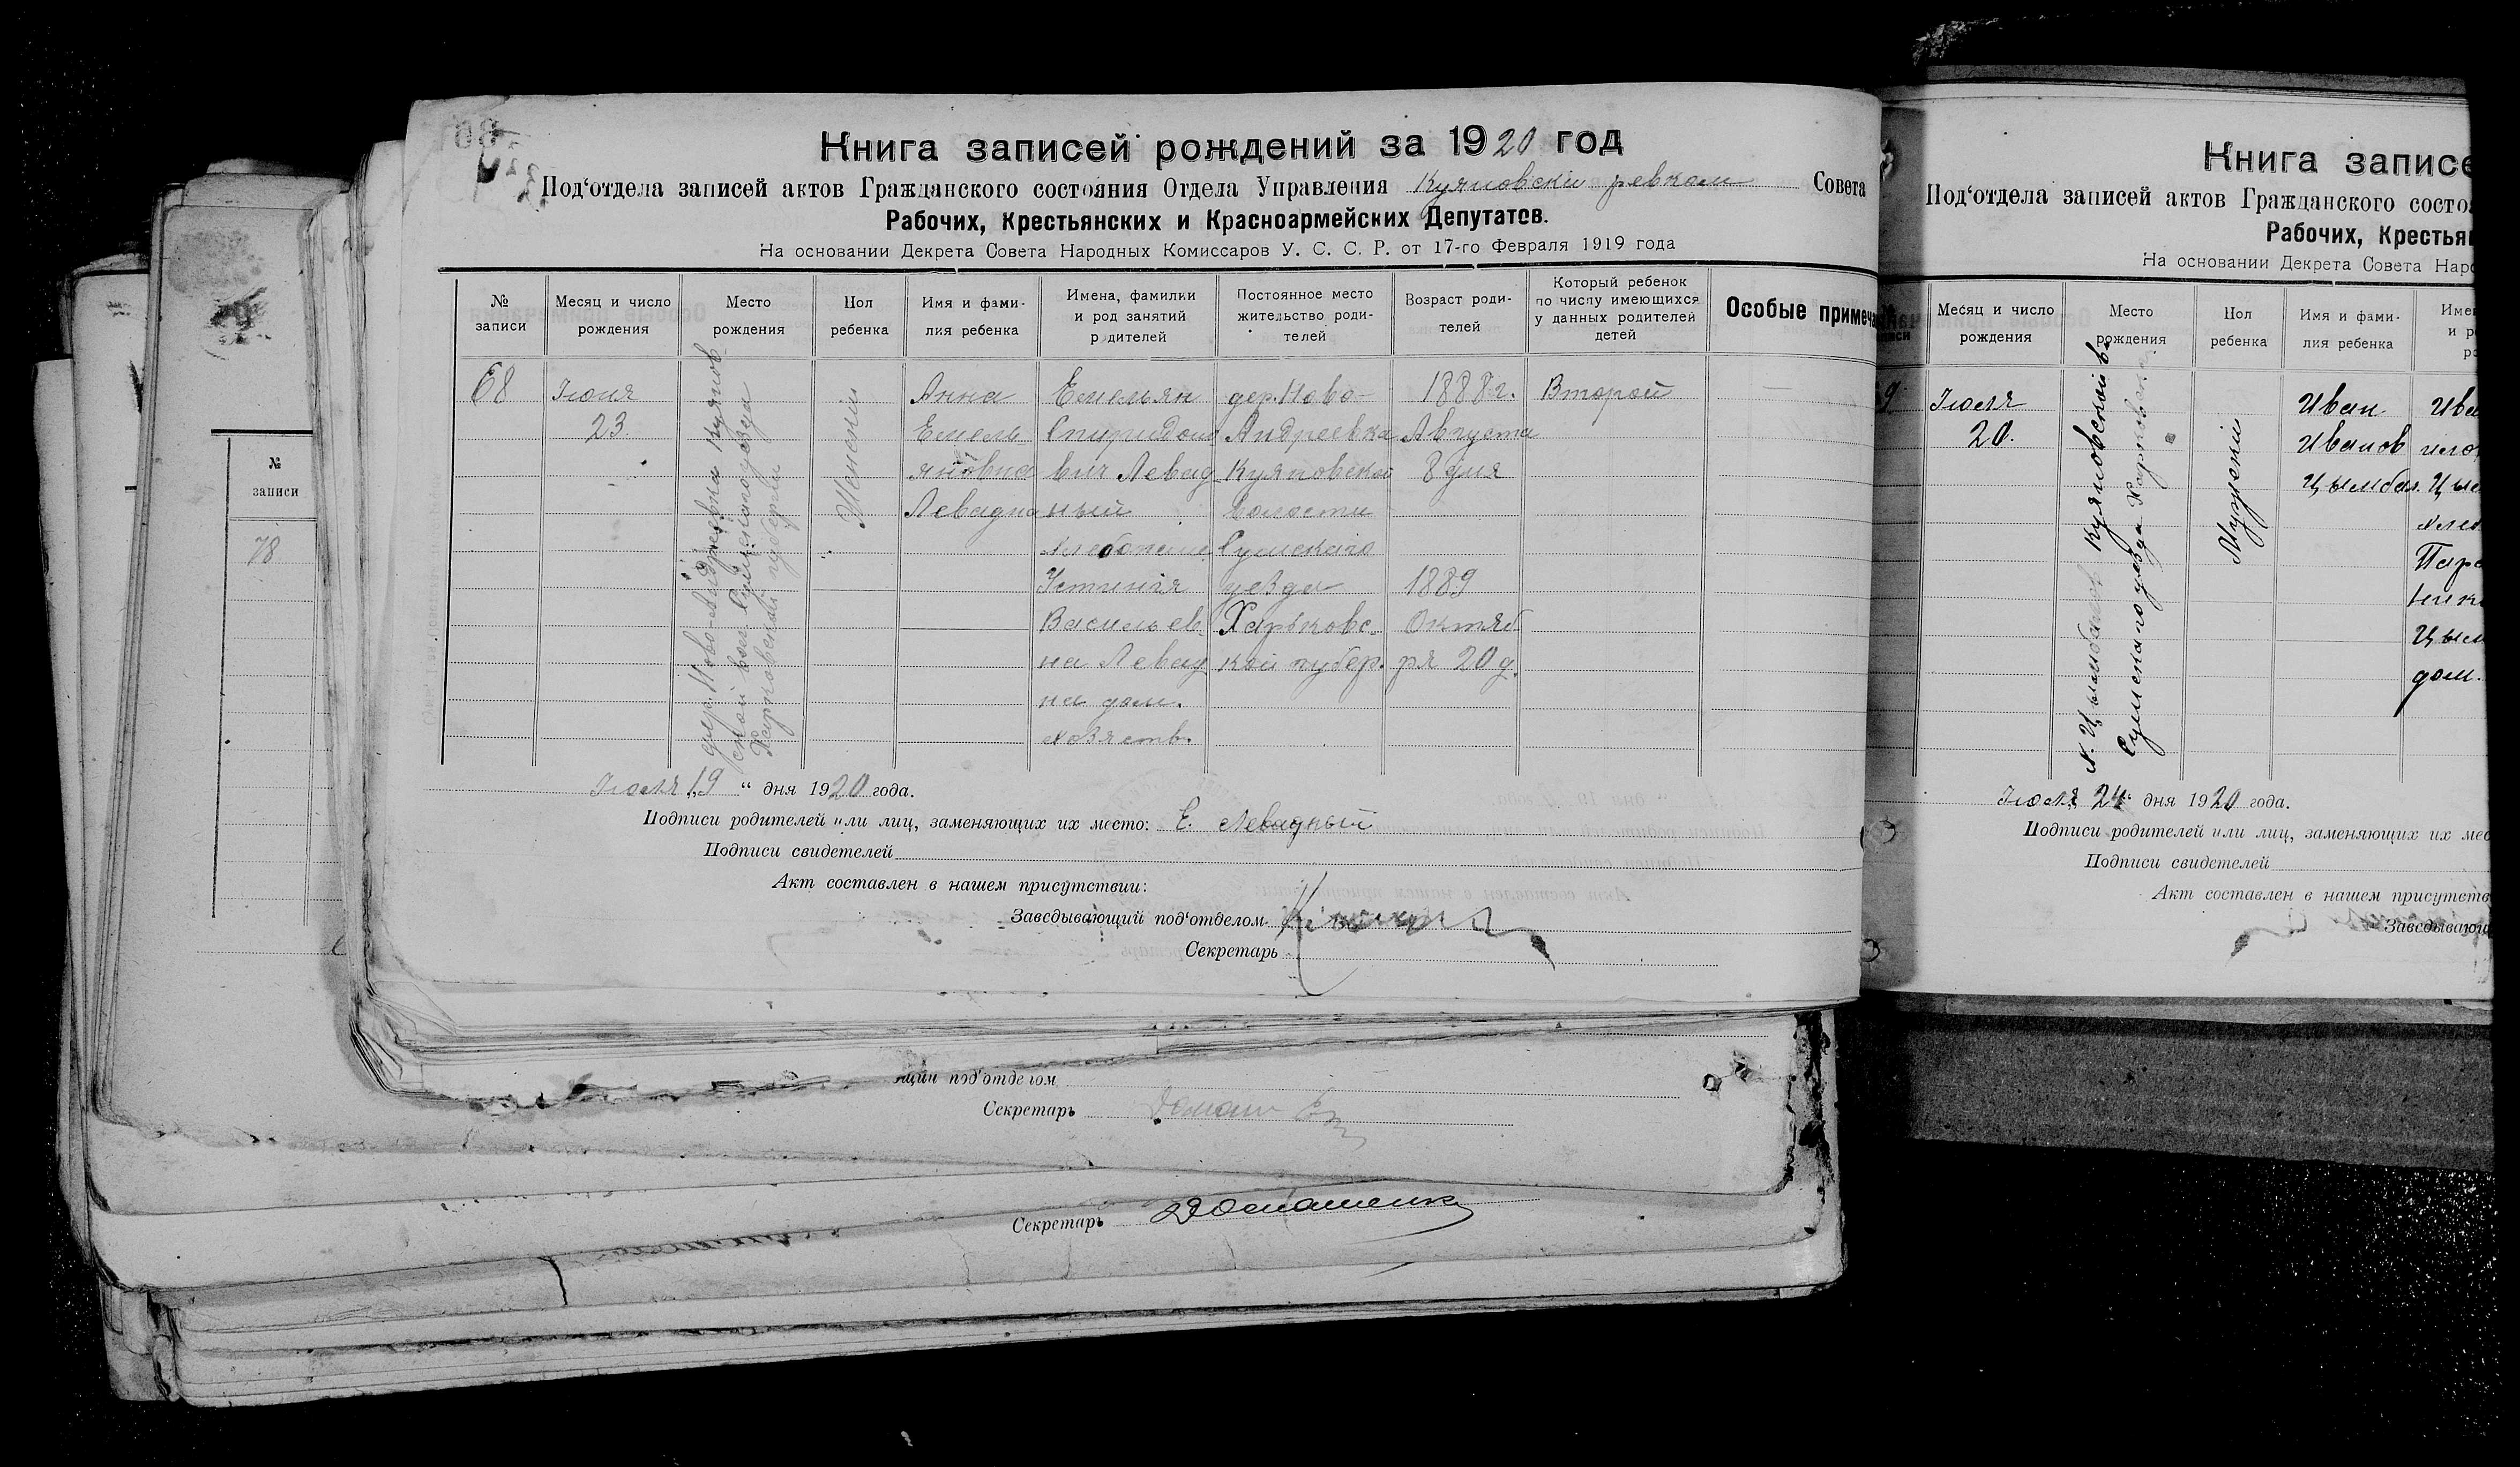 Книга записей рождений за 1920 год
Под‘отдела записей актов Гражданского состояния Отдела Управления Куяновски ревком Совета
Рабочих, Крестьянских и Красноармейских Депутатов.
На основании Декрета Совета Народных Комиссаров У. С. С. Р. от 17-го Февраля 1919 года
№ записи
Месяц и число рождения
Место рождения
Пол ребенка
Имя и фами-
лия ребенка
Имена, фамилии
и род занятий
р дителей
Постоянное место
жительство роди-
телей
Возраст роди-
телей
Который ребенок
по числу имеющихся
у данных родителей
детей
Особые примеч
68
Июня
23.
дер. Ново-Андреевка Куянов
ской вол. Сумского уезда
Харьковской губернии
Женский
Анна
Емель
яновна
Левадна
Емельян
Спиридоно
вич Левад
ный
хлебопаш
Устинія
Васильев
на Левад
на дом.
хозяств.
дер. Ново-
Андреевка
Куяновской
волости
Сумскаго
уезда
Харьковс-
кой губер.
1888 г.
Августа
8 дня
1889
Октяб
ря 20 д.
Второй
Июля „19 “ дня 1920 года.
Подписи родителей или лиц, заменяющих их место: Е. Левадный
Подписи свидетелей
Акт составлен в нашем присутствии:
Заведывающий под‘отделом
Секретарь
№
записи
78
щий под‘отделом
Секретарь
Секретарь Домашенк
Книга записе
Под‘отдела записей актов Гражданского состоя
Рабочих, Крестьян
На основании Декрета Совета Наро
Месяц и число
рождения
Место
рождения
Пол
ребенка
Имя и фами-
лия ребенка
Имен
и р
ро
9
Июля
20.
х. Цымбалов Куяновской в.
Сумскаго уезда Харьковской
Мужский
Иван
Иванов
Цымбал.
Ива
Цым
хлеб
Пара
Цым
дом.
Июля 24 “ дня 1920 года.
Подписи родителей или лиц, заменяющих их мес
Подписи свидетелей
Акт составлен в нашем присутств
Заведывающ